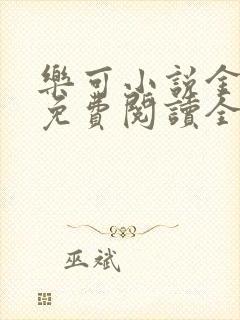 樂可小說全
免費閱讀全
巫斌